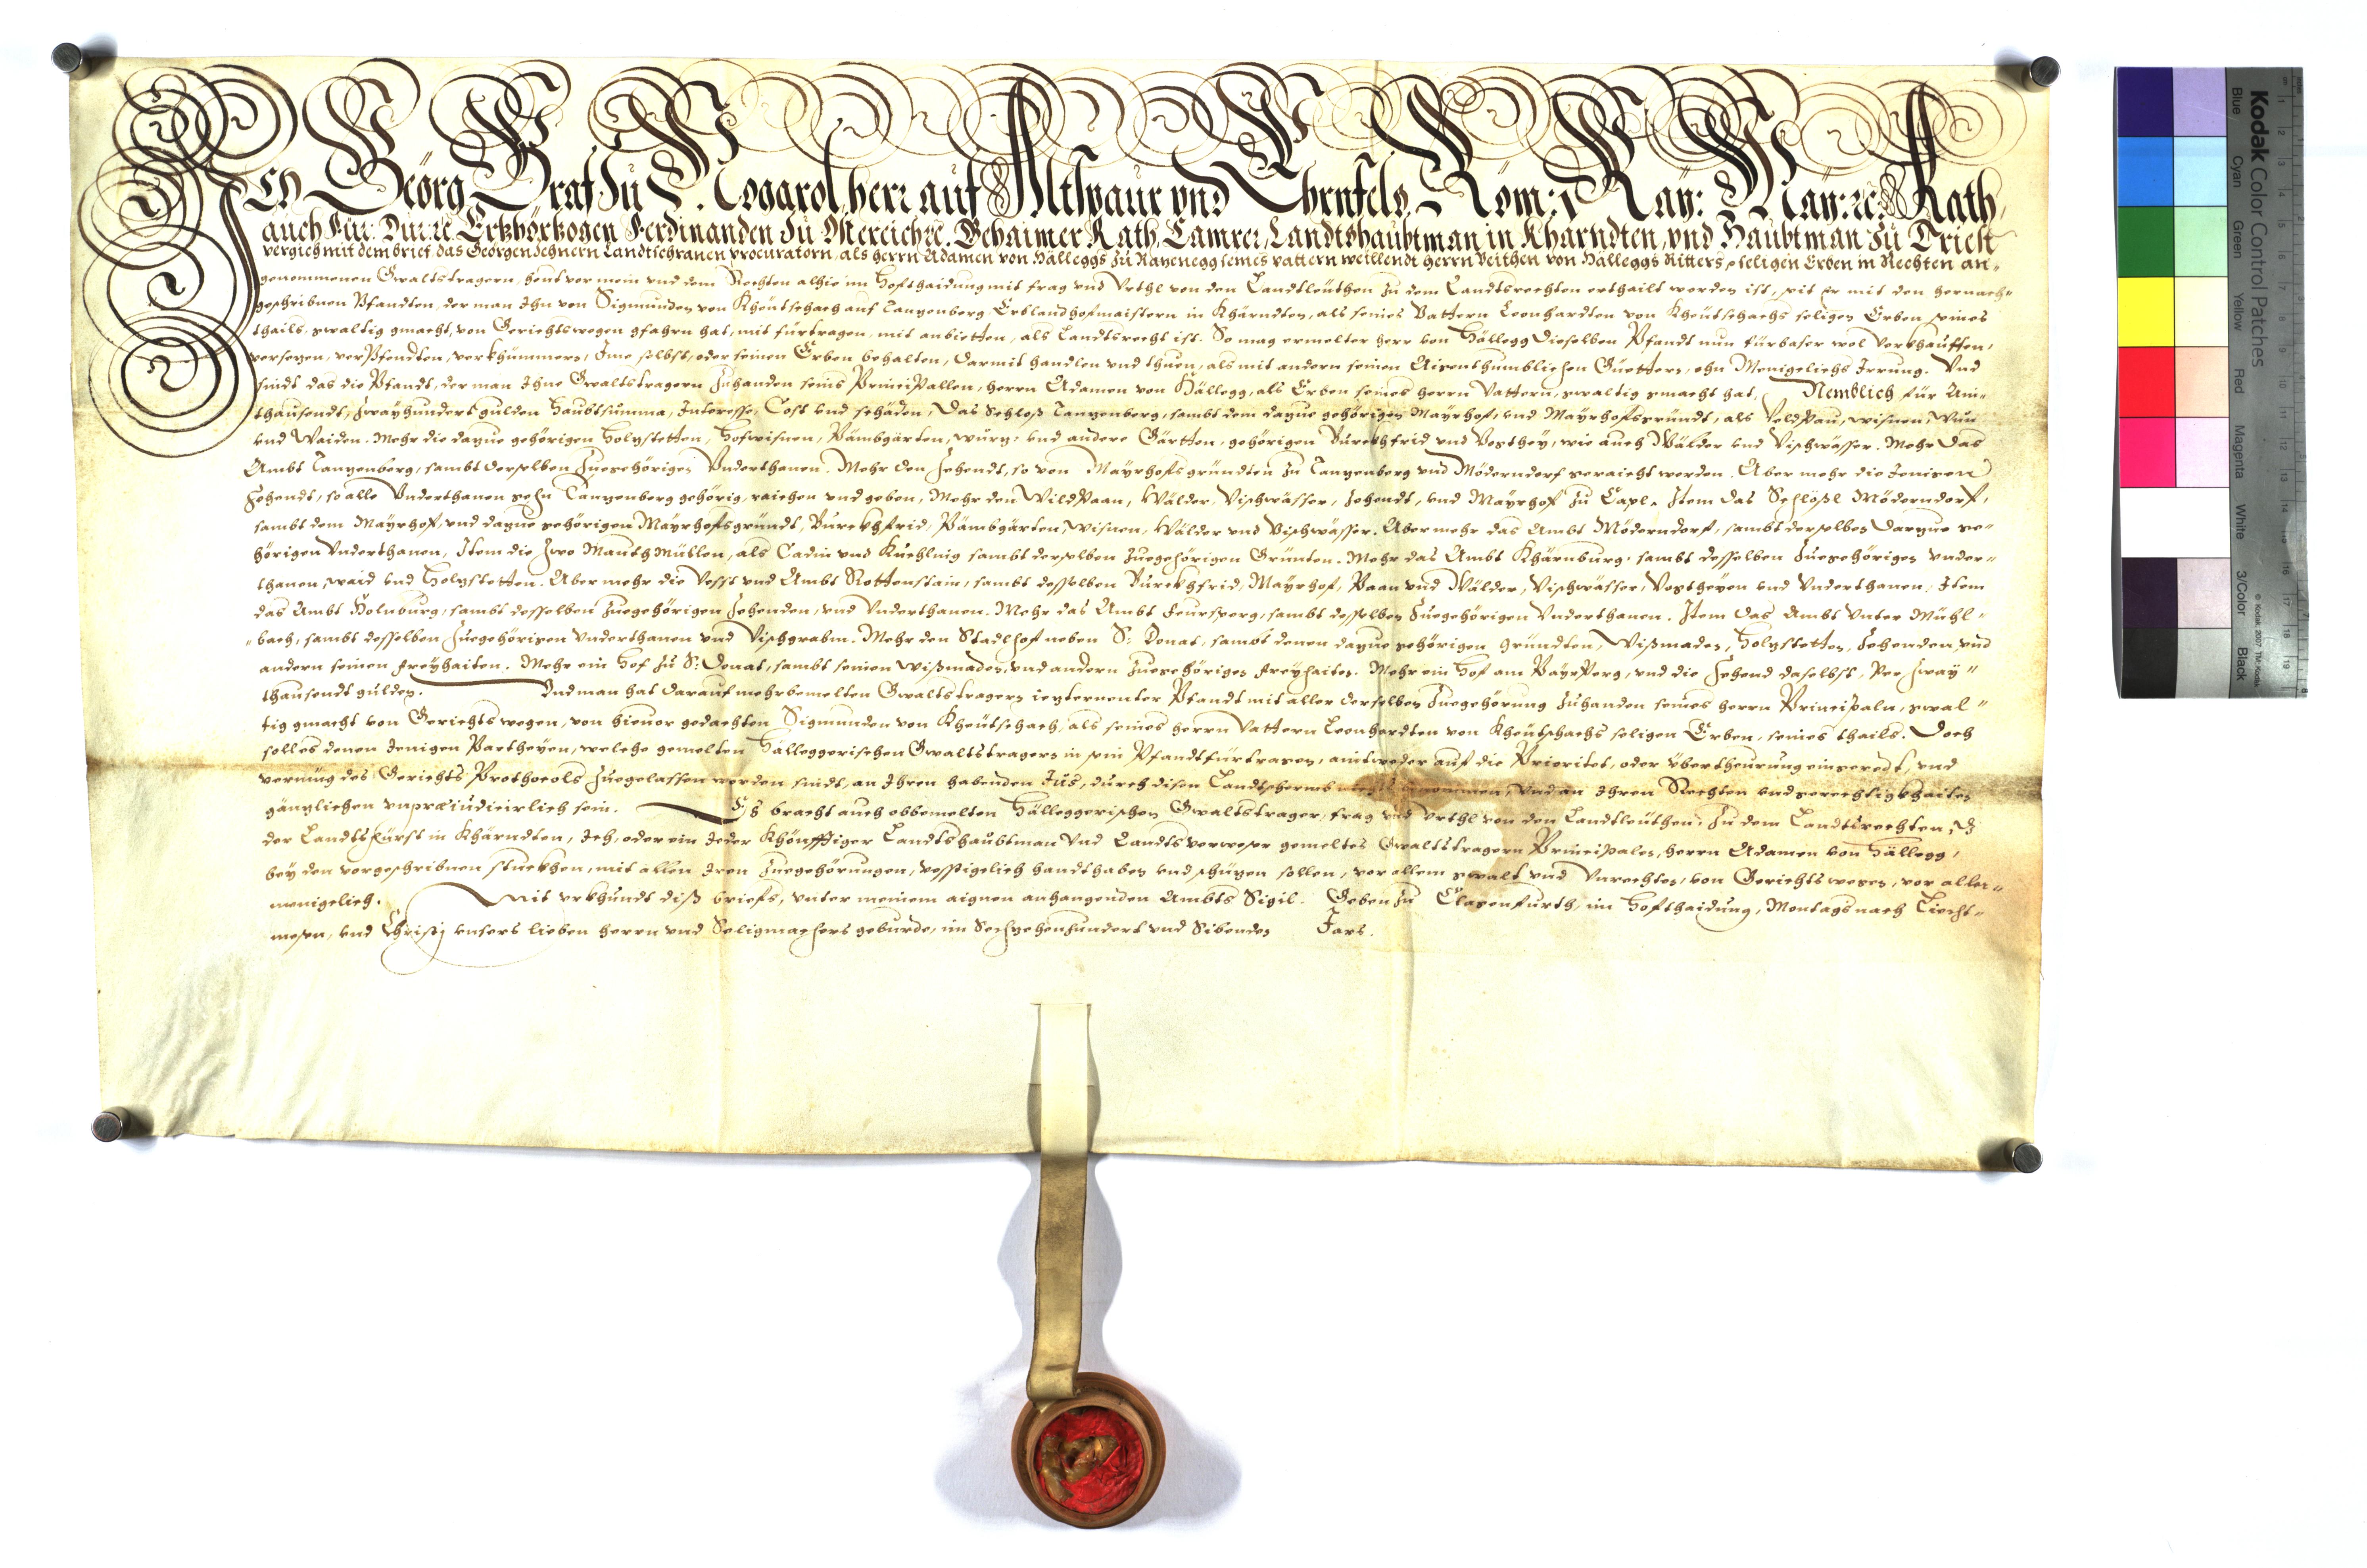 Ich Geörg Graf zu Nogarol herr auf Althspaur vnd Ehrnfels, Röm: Kay: May: rc: Rath,
auch Für: Dur: rc Ertzhörtzogen Ferdinanden zu Össterreich rc. Gehaimer Rath, Camrer, Landtshaubtman in Khärndten, vnd Haubtman zu Triest
vergich mit dem brief, das Georgen Landtschranen procuratorn, als herrn Adamen von Hälleggs zu Razenegg seines vattern weillendt herrn Veithen von Hälleggs Ritters seligen Erben in Rechten an-
genommenen Gwaltstragern, heut vor mein vnd dem Rechten alhie im Hofthaidung mit frag vnd Vrthl von den Landtleüthen zu dem Landtsrechten erthailt worden ist, seit Er mit den hernach-
geschribnen Pfandten, der man Ihn von Sigmunden von Kheütschach auf Tanzenberg Erblandhofmaistern in Khärndten, als seines Vattern Leonhardten von Kheütschachs seligen Erben seines
thails, gwaltig gmacht, von Gerichtswegen gfahrn hat, mit fürtragen, mit anbietten, als Landtsrecht ist. So mag ermelter herr von Hällegg dieselben Pfandt nun fürbaser wol verkhauffen,
versezen, verpfendten, verkhümmern, Ime selbst, oder seinen Erben behalten, darmit handlen vnd thuen, als mit andern seinen Aigenthumblichen Guettern, ohn Meniglichs Irrung. Vnd
sindt das die Pfandt, der man Ihne Gwaltstragern zuhanden seins Principallen, herrn Adamen von Hällegg, als Erben seines herrn Vattern, gwaltig gmacht hat, Nemblich für Ain-
thausendt, zwayhundert gulden Haubtsumma, Interesse, Cost vnd schäden, Das Schloß Tanzenberg, sambt dem dazue gehörigen Mayrhof, vnd Mayrhofsgründt, als Veldpau, wisnen, Wun
vnd Waiden. Mehr die dazue gehörigen Holzstetten, Hofwisnen, Pämbgärten, würz- vnd andere Gärtten, gehörigen Burckhfrid vnd Vogthey, wie auch Wälder vnd Vischwässer. Mehr das
Ambt Tanzenberg, sambt derselben zuegehörigen Vnderthanen. Mehr den Zehendt, so von Mayrhofsgründten zu Tanzenberg vnd Möderndorf geraicht werden. Aber mehr die Jenigen
Zehendt, so alle Vnderthanen gehn Tanzenberg gehörig, raichen vnd geben, Mehr den Wildpaan, Wälder, Vischwässer, Zehendt, vnd Mayrhof zu Capl. Item das Schlößl Möderndorf,
sambt dem Mayrhof, vnd dazue gehörigen Mayrhofsgründt, Burckhfrid, Pämbgärten, Wisnen, Wälder vnd Vischwässer. Aber mehr das Ambt Möderndorf, sambt derselben darzue ge-
hörigen Vnderthanen, Item die zwo Mauthmüllen, als Cadin vnd Kuehlnig sambt derselben zuegehörigen Grünten. Mehr das Ambt Khärnburg, sambt desselben zuegehörigen vnder-
thanen, waid vnd Holzstetten. Aber mehr die Vesst vnd Ambt Rottenstain, sambt desselben Burckhfrid, Mayrhof, Paan vnd Wälder, Vischwässer, Vogtheyen vnd Vnderthanen, Item
das Ambt Holnburg, sambt desselben zuegehörigen Zehenden, vnd Vnderthanen. Mehr das Ambt Feursperg, sambt desselben zuegehörigen Vnderthanen. Item das Ambt Vnter Mühl-
-bach, sambt desselben zuegehörigen Vnderthanen vnd Vischgrabm. Mehr den Stadlhof neben S: Donat, sambt denen dazue gehörigen gründten, Wißmaden, Holzstetten, Zehenden, vnd
andern seinen freyhaiten. Mehr ein Hof zu S: Donat, sambt seinen wißmaden, vnd andern zuegehörigen freyhaiten. Mehr ein Hof am Payrperg, vnd die Zehend daselbst, Per zway-
thausendt gulden. Vnd man hat darauf mehrbemelten Gwaltstragern iezternenter Pfandt mit aller derselben zuegehörung zuhanden seines herrn Principaln, gwal-
tig gmacht von Gerichts wegen, von hieuor gedachten Sigmunden von Kheütschach, als seines herrn Vattern Leonhardten von Kheütschachs seligen Erben, seines thails. Doch
soll es denen Jenigen Partheyen, welche gemelten Hälleggerischen Gwaltstragern in sein Pfandtfürtragen, aintweder auf die Prioritet, oder übertheurung eingeredt, vnd
vermüg des Gerichts Prothocols zuegelassen worden sindt, an Ihren habenden Jus, durch disen Landtschermb nichts benommen, vnd an Ihren Rechten vnd gerechtigkhaiten
gänzlichen vnpræiudicirlich sein. Es bracht auch obbemelten Hälleggerischen Gwaltstrager, frag vnd vrthl von den Landtleüthen, zu dem Landtsrechten, dz
der Landtsfürst in Khärndten, Ich, oder ein Jeder Khönfftiger Landtshaubtman vnd Landtsverweser gemeltes Gwaltstragern Principalen, herrn Adamen von Hällegg,
bey den vorgeschribnen stuckhen, mit allen Iren zuegehörungen, vesstigelich handthaben vnd schüzen sollen, vor allem gwalt vnd Vnrechten, von Gerichts wegen, vor aller-
menigelich. Mit vrkhundt diß briefs, vnter meinem aignen anhangenden Ambts Sigil. Geben zu Clagenfurth, im Hofthaidung, Montags nach Liecht-
mesen, vnd Christj vnsers lieben herrn vnd Seligmachers geburde, im Sechzehenhundert vnd Sibenden Jars.
Kodak Color Control Patches
Blue Cyan Green Yellow Red Magenta White 3/Color Black
© Kodak, 2007 TM: Kodak